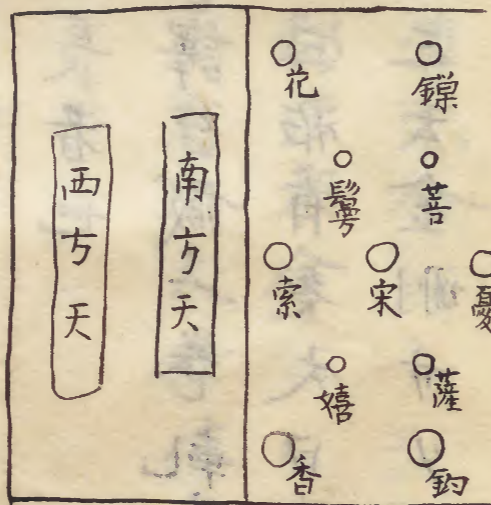 憂
鏁
菩
薩
鈎
宋
鬘
嬉
花
索
香
南方天
西方天